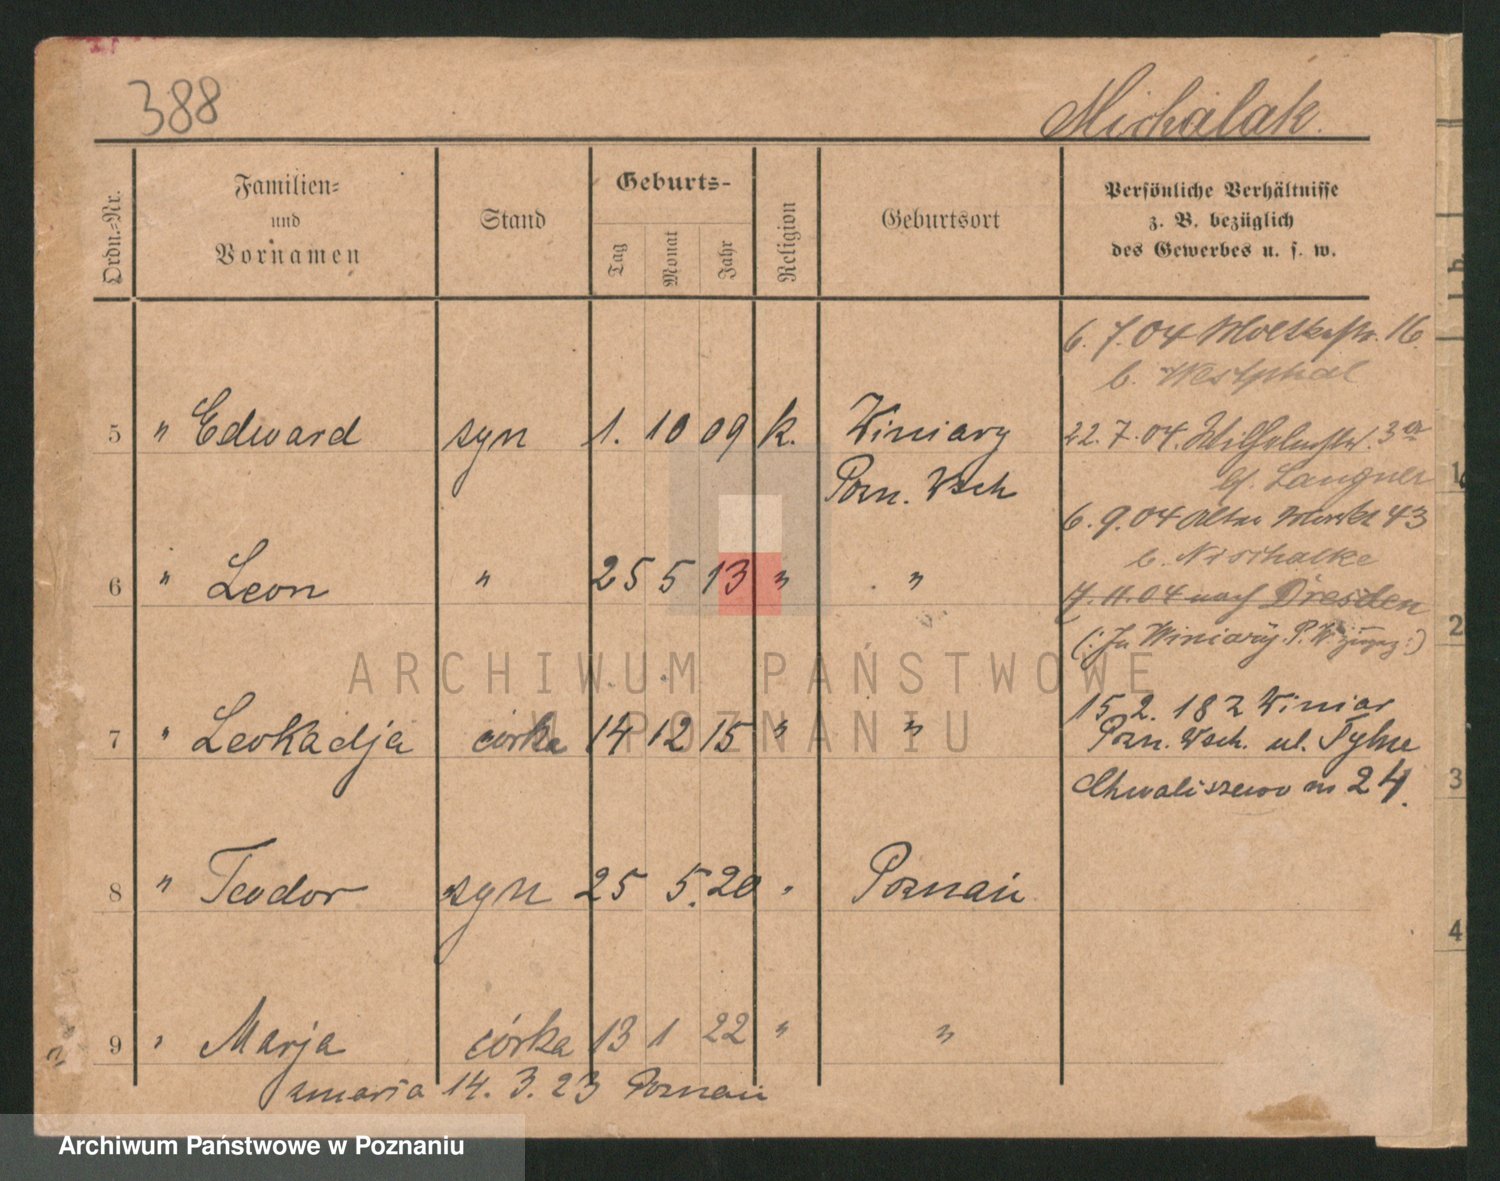 388
Michalak.
Ordn.-Nr.
Familien-
und
Vornamen
Stand
Geburts-
Tag
Monat
Jahr
Religion
Geburtsort
Persönliche Verhältnisse
z. B. bezüglich
des Gewerbes u. s. w.
6. 7. 04 Moltkestr. 16.
b. Westphal
5 " Edward syn 1. 10 09 k. Winiary
Pozn. Wsch
22. 7. 04. Wilhelmstr. 3a
Langner
6. 9. 04 Alter Markt 43
b. Nischalke
6 " Leon " 25 5 13 " "
7. 11. 04 nach Dresden
(: In Winiary. P. W. :)
ARCHIWUM PAŃSTWOWE
W POZNANIU
7 " Leokadja córka 14 12 15 " "
15. 2. 182 Winiar
Pozn. Wsch. ul. Tylne
Chwaliszewo m 24.
8 " Teodor syn 25 5. 20 " Poznań
9 " Marja córka 13 1 22 " "
zmarła 14. 3. 23 Poznań
1
2
3
4
Archiwum Państwowe w Poznaniu